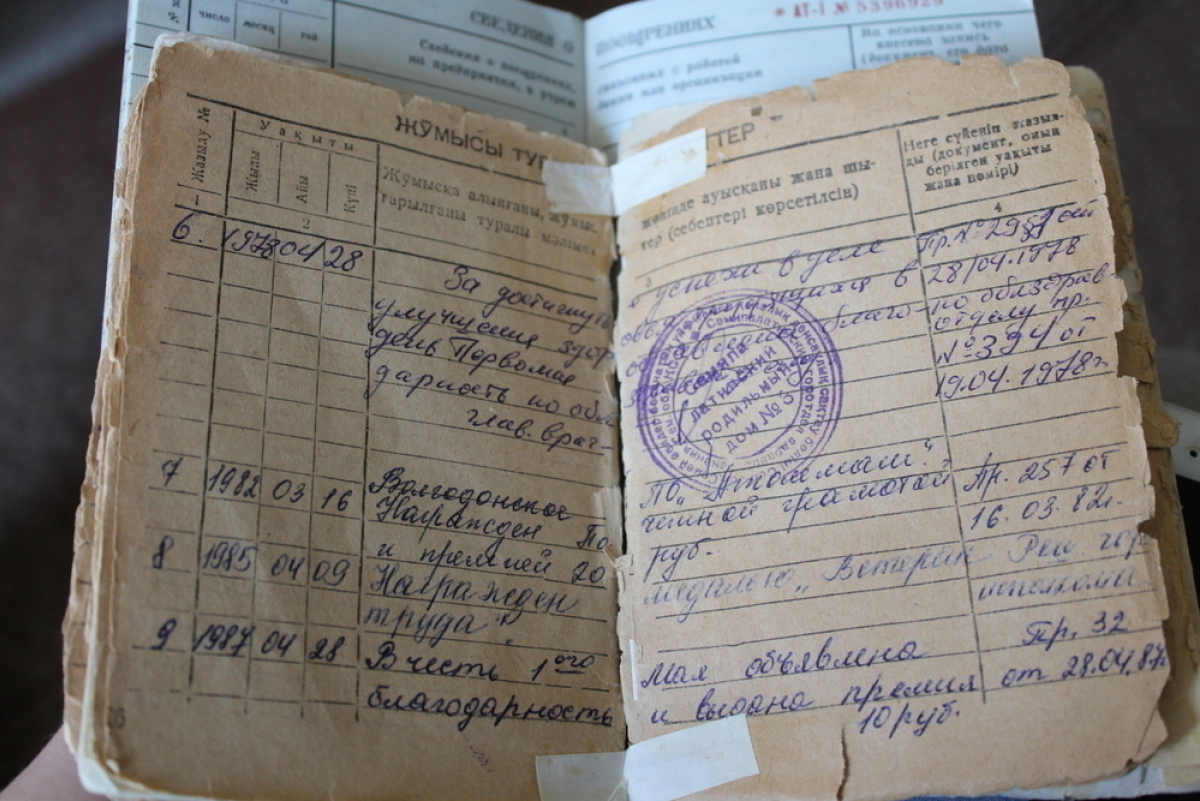 СВЕДЕНИЯ О ПООЩРЕНИЯХ
* АТ-I № 5396929
число месяц год
Сведения о поощрениях, связанных с работой
на предприятии, в учреж дении или организации
На основании чего
внесена запись
(документ, его дата
ЖҰМЫСЫ ТУР ТЕР
Жазылу №
Уақыты
Жылы
Айы
Күні
Жұмысқа алынғаны, жұмыс
тарылғаны туралы мәлімет
жөнінде ауысқаны және шы-
тер (себептері көрсетілсін)
Неге сүйеніп жазыл-
ды (документ, оның
берілген уақыты
және нөмірі)
1 2 3 4
6. 1978 04 28
За достигнут успехи в деле
улучшения здор
день Первомая благо-
дарность по обл
глав. врач
Пр. № 298 от
28/04.1978
по облздрав-
отделу пр.
№ 394 от
19.04.1978г.
Семипа
латинский
родильный
дом № 3
7 1982 03 16 Волгодонское ПО "Атоммаш".
Награжден По четной грамотой
и премией 20 руб.
Пр. 257 от
16.03.82г.
8 1985 04 09 Награжден медалью "Ветеран
труда".
Реш. гор
исполкома
9 1987 04 28 В честь 1ого Мая объявлена
благодарность и выдана премия
10 руб.
Пр. 32
от 28.04.87г
26